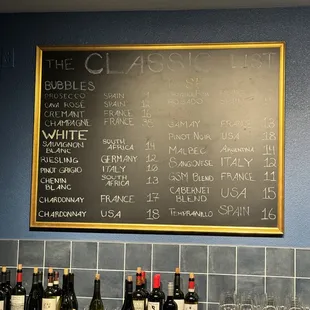 THE CLASSIC LIST
BUBBLES
PROSECCO SPAIN
CAVA ROSE SPAIN
CREMANT FRANCE 16
CHAMPAGNE FRANCE
WHITE
SAUVIGNON BLANC SOUTH AFRICA 14
RIESLING GERMANY 12
PINOT GRIGIO ITALY
CHENIN BLANC SOUTH AFRICA 13
CHARDONNAY FRANCE 17
CHARDONNAY USA 18
GAMAY FRANCE
PINOT NOIR USA 18
MALBEC ARGENTINA 14
SANGIOVESE ITALY 12
GSM BLEND FRANCE 11
CABERNET BLEND USA 15
TEMPRANILLO SPAIN 16